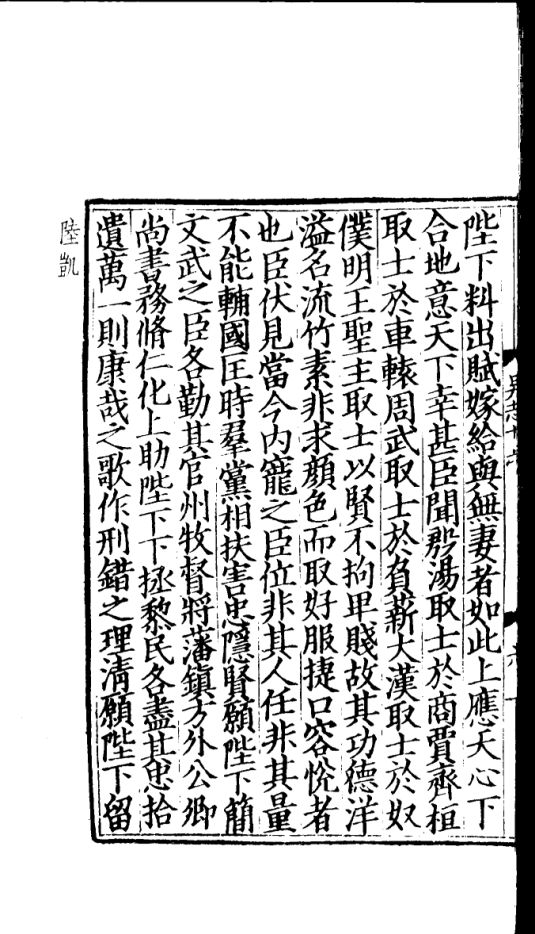 陛下料出賦嫁給與無妻者如此上應天心下
合地意天下幸甚臣聞殷湯取士於商賈齊桓
取士於車轅周武取士於負薪大漢取士於奴
僕明王聖主取士以賢不拘卑賤故其功德洋
溢名流竹素非求顏色而取好服捷口容悅者
也臣伏見當今內寵之臣位非其人任非其量
不能輔國匡時羣黨相扶害忠隱賢願陛下簡
文武之臣各勤其官州牧督將藩鎮方外公卿
尚書務脩仁化上助陛下下拯黎民各盡其忠拾
遺萬一則康哉之歌作刑錯之理清願陛下留
陸凱